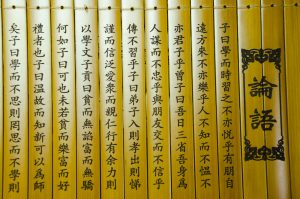 論語
子曰學而時習之不亦悦乎有朋自
遠方來不亦樂乎人不知而不愠不
亦君子乎曾子曰吾日三省吾身爲
人謀而不忠乎與朋友交而不信乎
傳不習乎子曰弟子入則孝出則悌
謹而信泛愛衆而親仁行有余力則
以學文子貢曰貧而無諂富而無驕
何如子曰可也未若貧而樂富而好
禮者也子曰温故而知新可以爲師
矣子曰學而不思則罔思而不學則